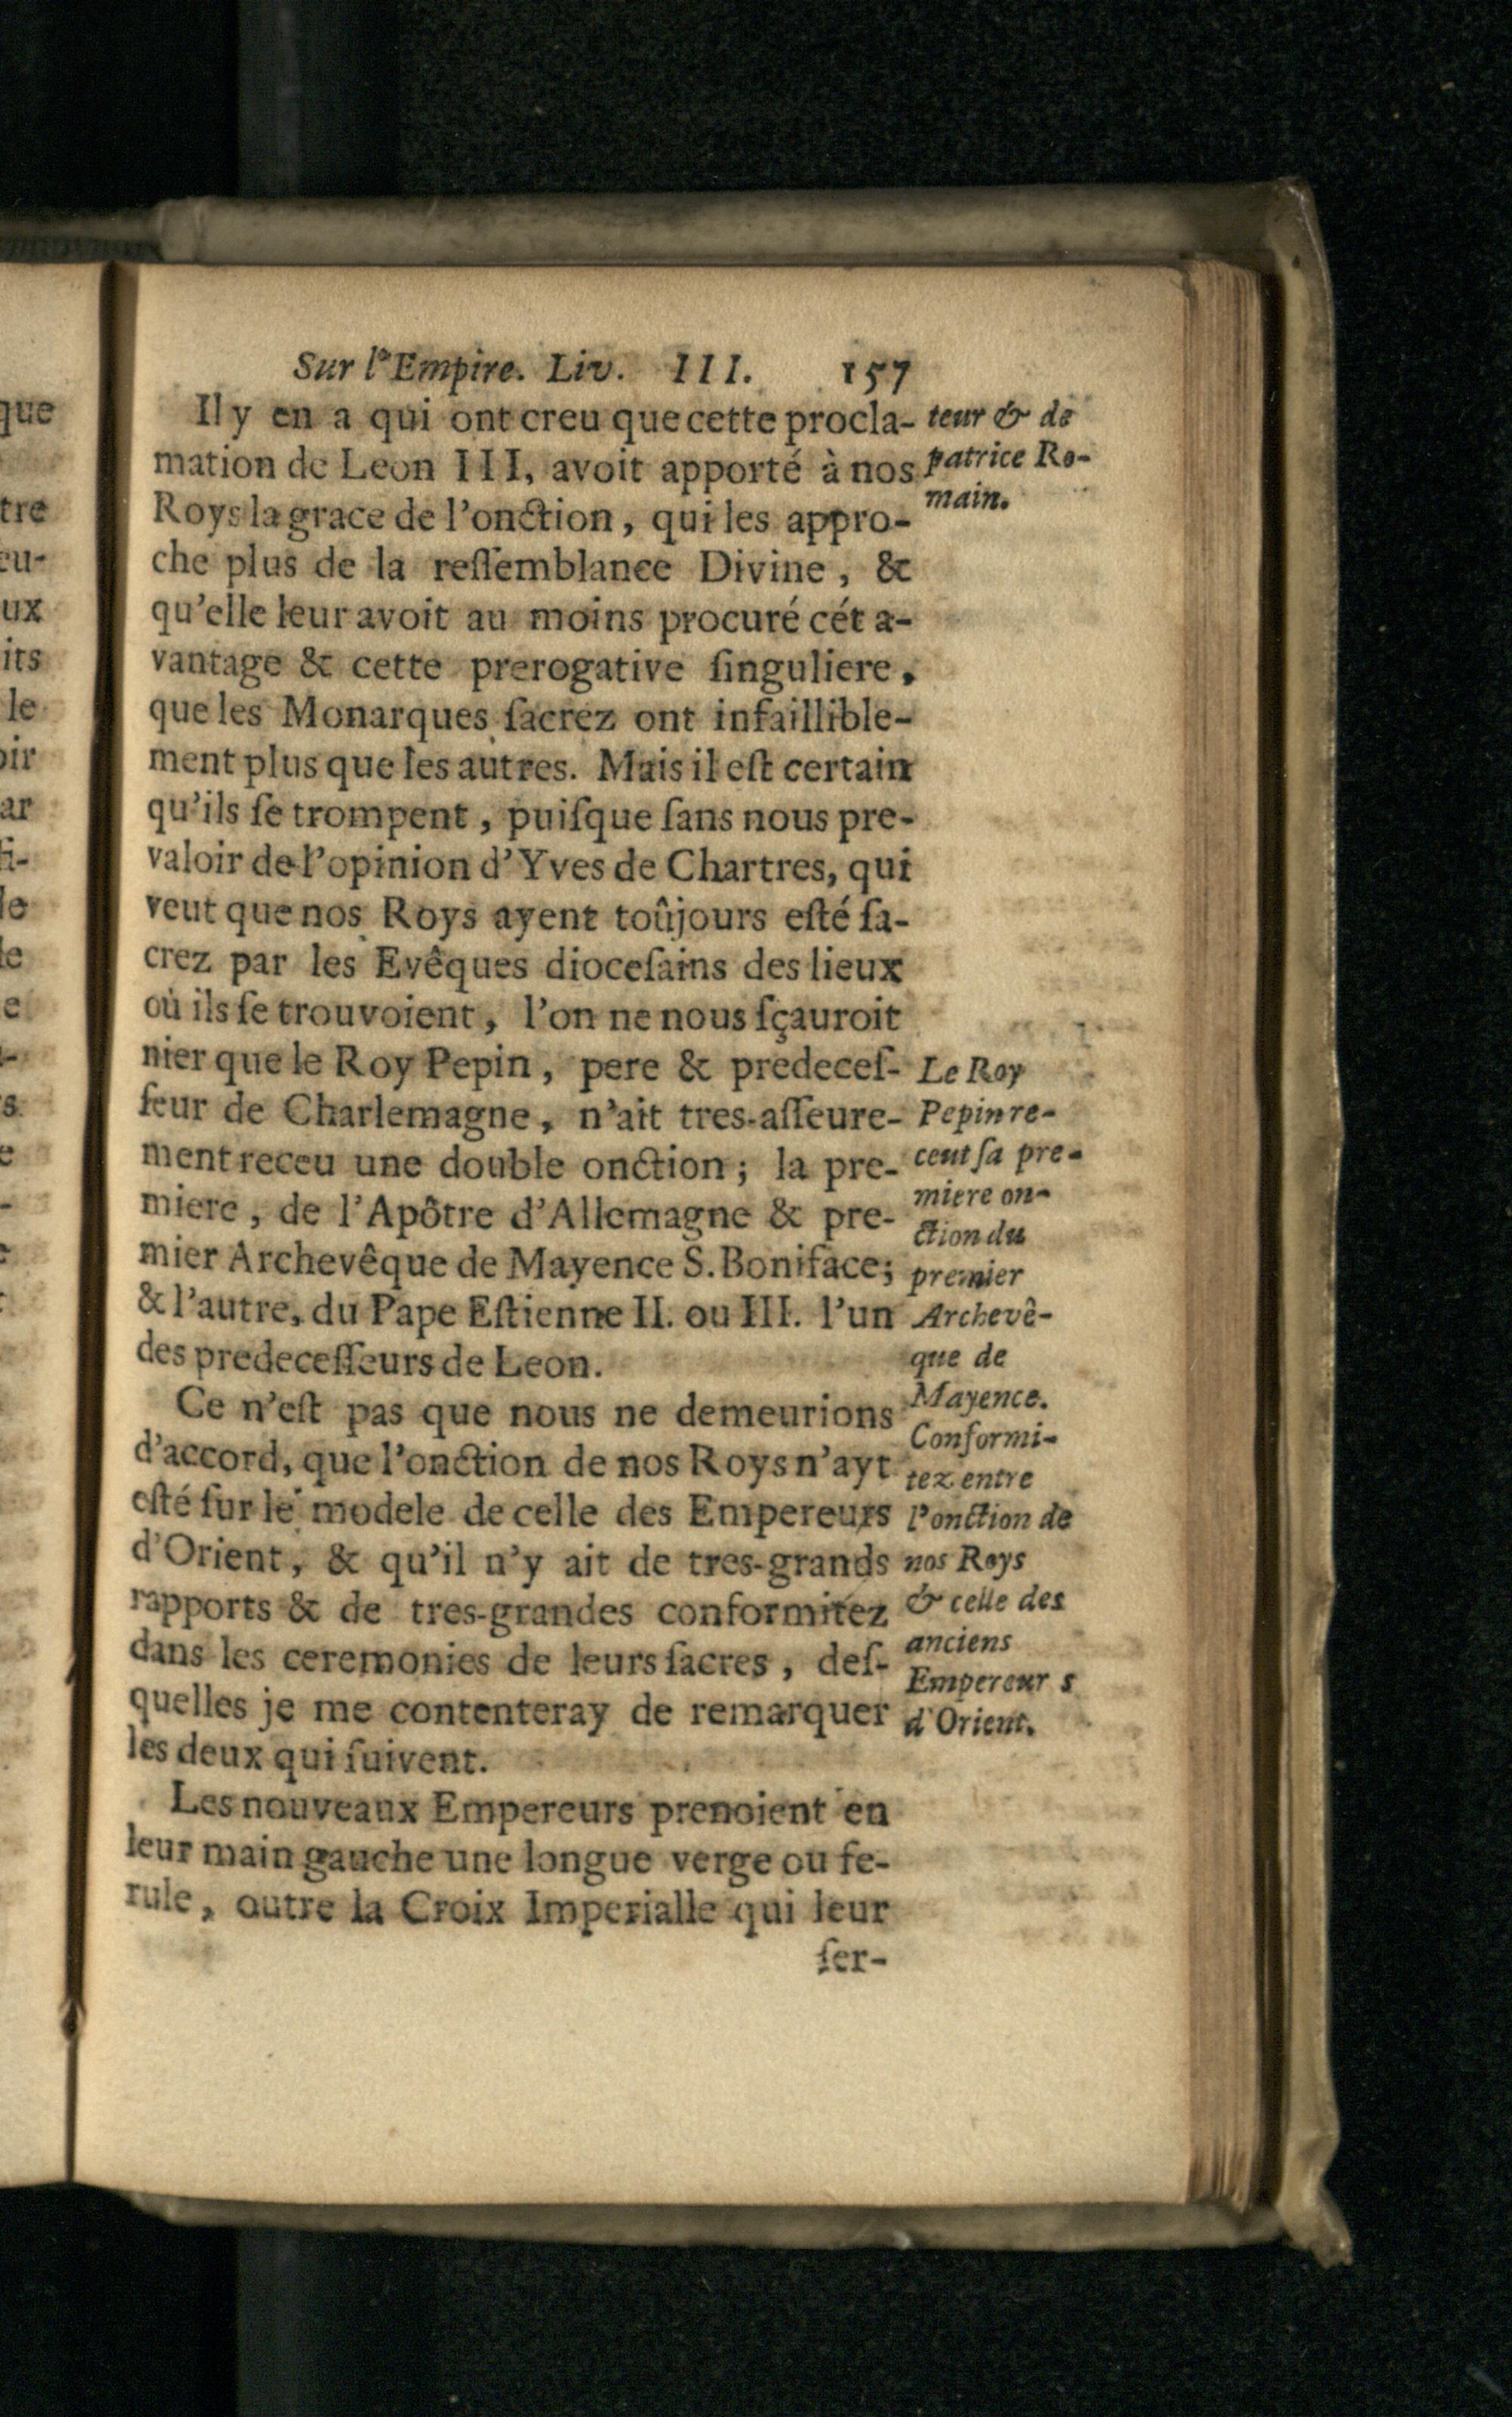 Sur l'Empire. Liv. III. 157
Il y en a qui ont creu que cette procla-
mation de Leon III, avoit apporté à nos
Roys la grace de l'onction, qui les appro-
che plus de la reſſemblance Divine, &
qu'elle leur avoit au moins procuré cét a-
vantage & cette prerogative ſinguliere,
que les Monarques ſacrez ont infaillible-
ment plus que les autres. Mais il eſt certain
qu'ils ſe trompent, puiſque ſans nous pre-
valoir de l'opinion d'Yves de Chartres, qui
veut que nos Roys ayent toûjours eſté ſa-
crez par les Evêques dioceſains des lieux
où ils ſe trouvoient, l'on ne nous ſçauroit
nier que le Roy Pepin, pere & predeceſ-
ſeur de Charlemagne, n'ait tres-aſſeure-
ment receu une double onction; la pre-
miere, de l'Apôtre d'Allemagne & pre-
mier Archevêque de Mayence S. Boniface;
& l'autre, du Pape Eſtienne II. ou III. l'un
des predeceſſeurs de Leon.
Ce n'eſt pas que nous ne demeurions
d'accord, que l'onction de nos Roys n'ayt
eſté ſur le modele de celle des Empereurs
d'Orient, & qu'il n'y ait de tres-grands
rapports & de tres-grandes conformitez
dans les ceremonies de leurs ſacres, deſ-
quelles je me contenteray de remarquer
les deux qui ſuivent.
Les nouveaux Empereurs prenoient en
leur main gauche une longue verge ou fe-
rule, outre la Croix Imperialle qui leur
ſer-
teur & de
patrice Ro-
main.
Le Roy
Pepin re-
ceut ſa pre-
miere on-
ction du
premier
Archevê-
que de
Mayence.
Conformi-
tez entre
l'onction de
nos Roys
& celle des
anciens
Empereur s
d'Orient.